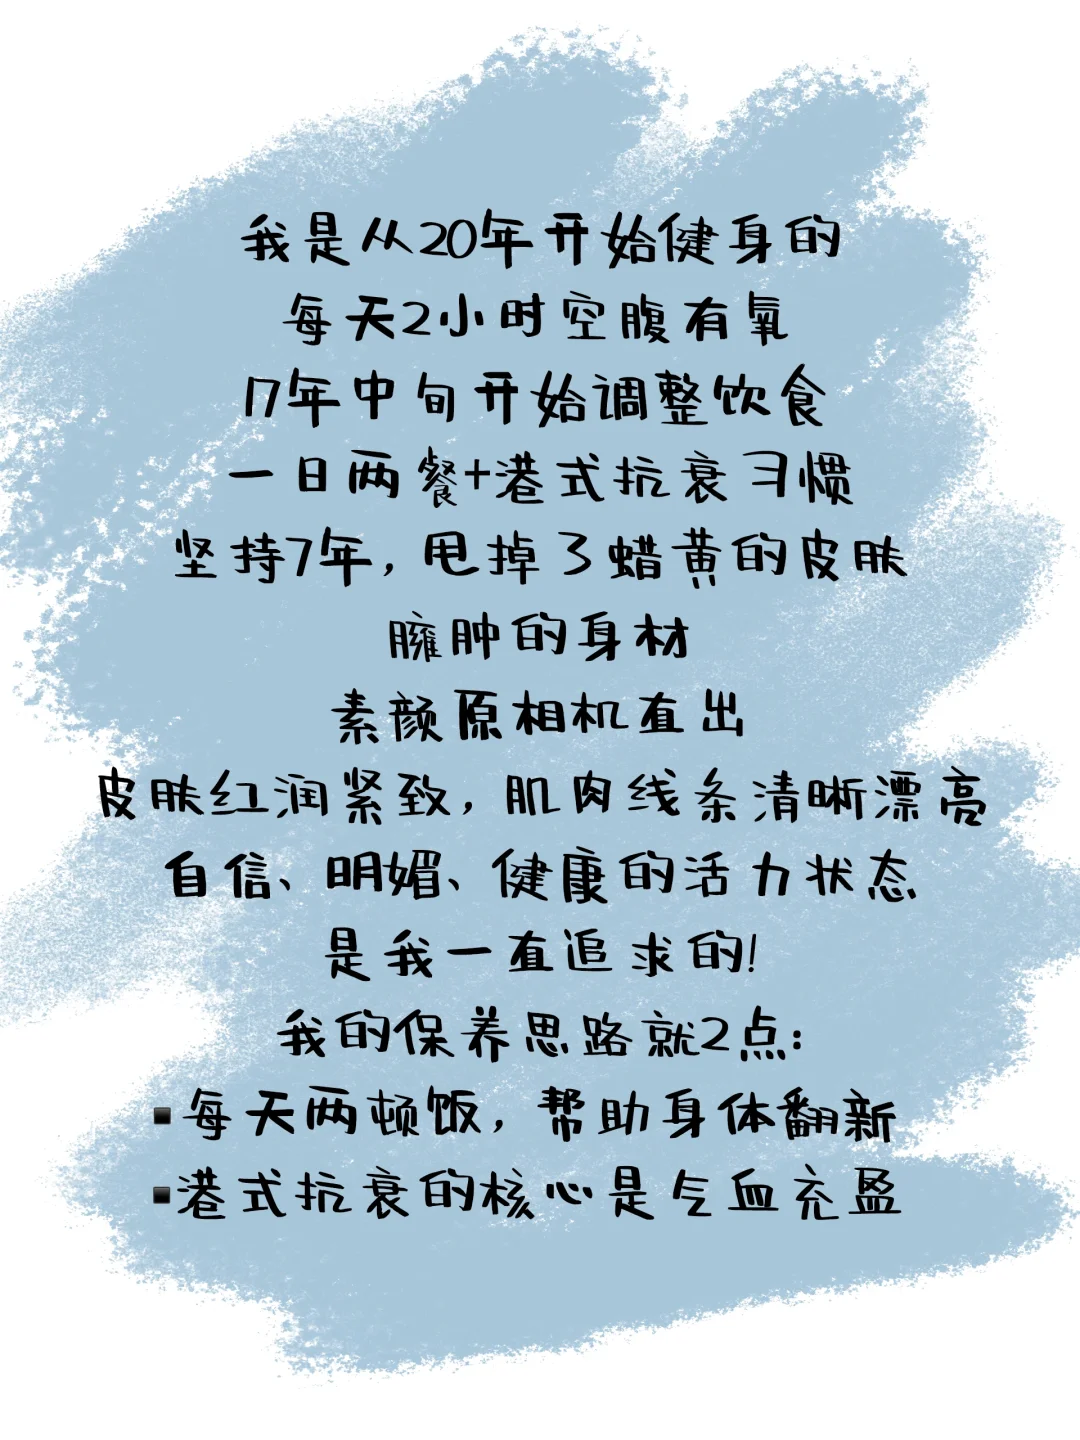 我是从20年开始健身的
每天2小时空腹有氧
17年中旬开始调整饮食
一日两餐+港式抗衰习惯
坚持7年,甩掉了蜡黄的皮肤
臃肿的身材
素颜原相机直出
皮肤红润紧致,肌肉线条清晰漂亮
自信、明媚、健康的活力状态
是我一直追求的!
我的保养思路就2点:
▪每天两顿饭,帮助身体翻新
▪港式抗衰的核心是气血充盈